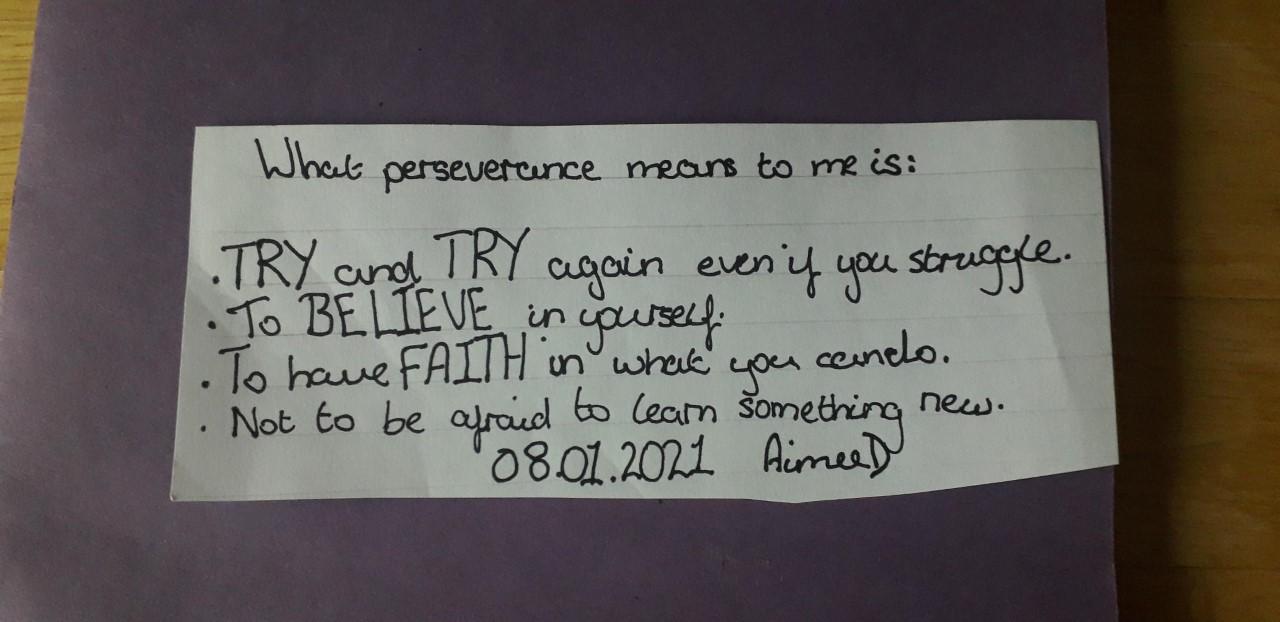 What perseverance means to me is:
. TRY and TRY again even if you struggle.
. To BELIEVE in yourself.
. To have FAITH in what you can do.
. Not to be afraid to learn something new.
08.01.2021 Aimee D